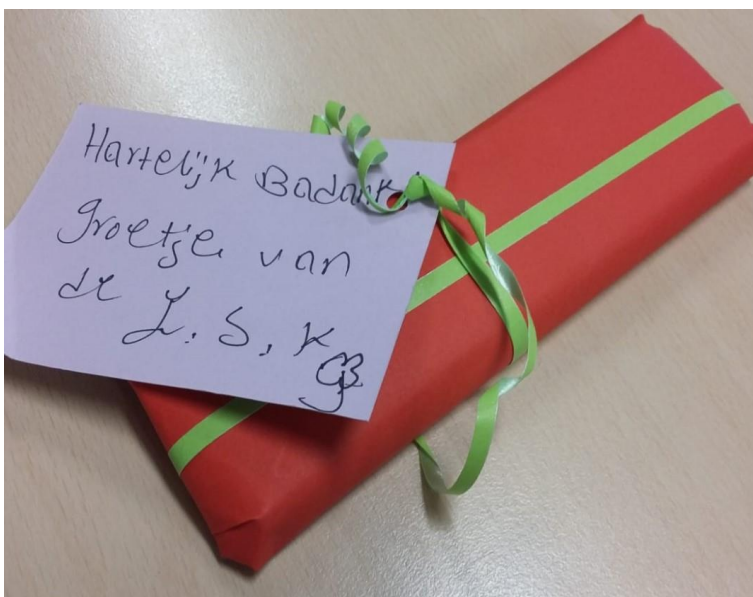 Hartelijk Badankt
groetje van
de
L. S. K